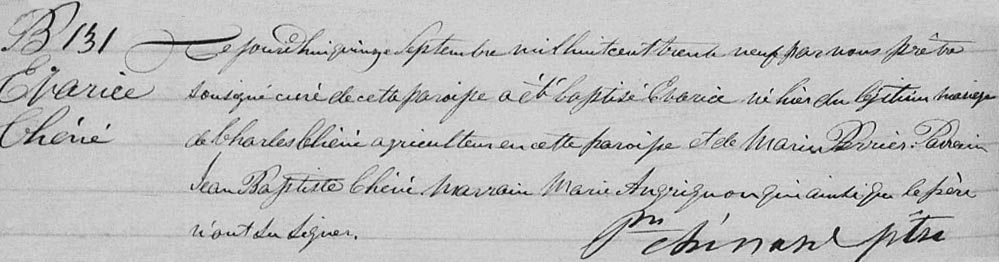 B 131
Evarice
Chéné
Ce jourdhui quinze Septembre mil huit cent trente neuf par nous prêtre
sousigné curé de cete paroisse a été baptisé Evarice né hier du légitime mariage
de Charles Chéné agriculteur en cette paroisse et de Marie Perrier. Parrain
Jean Baptiste Chéné. Marraine Marie Angrignon qui ainsi que le père
n'ont su signer.
ptre